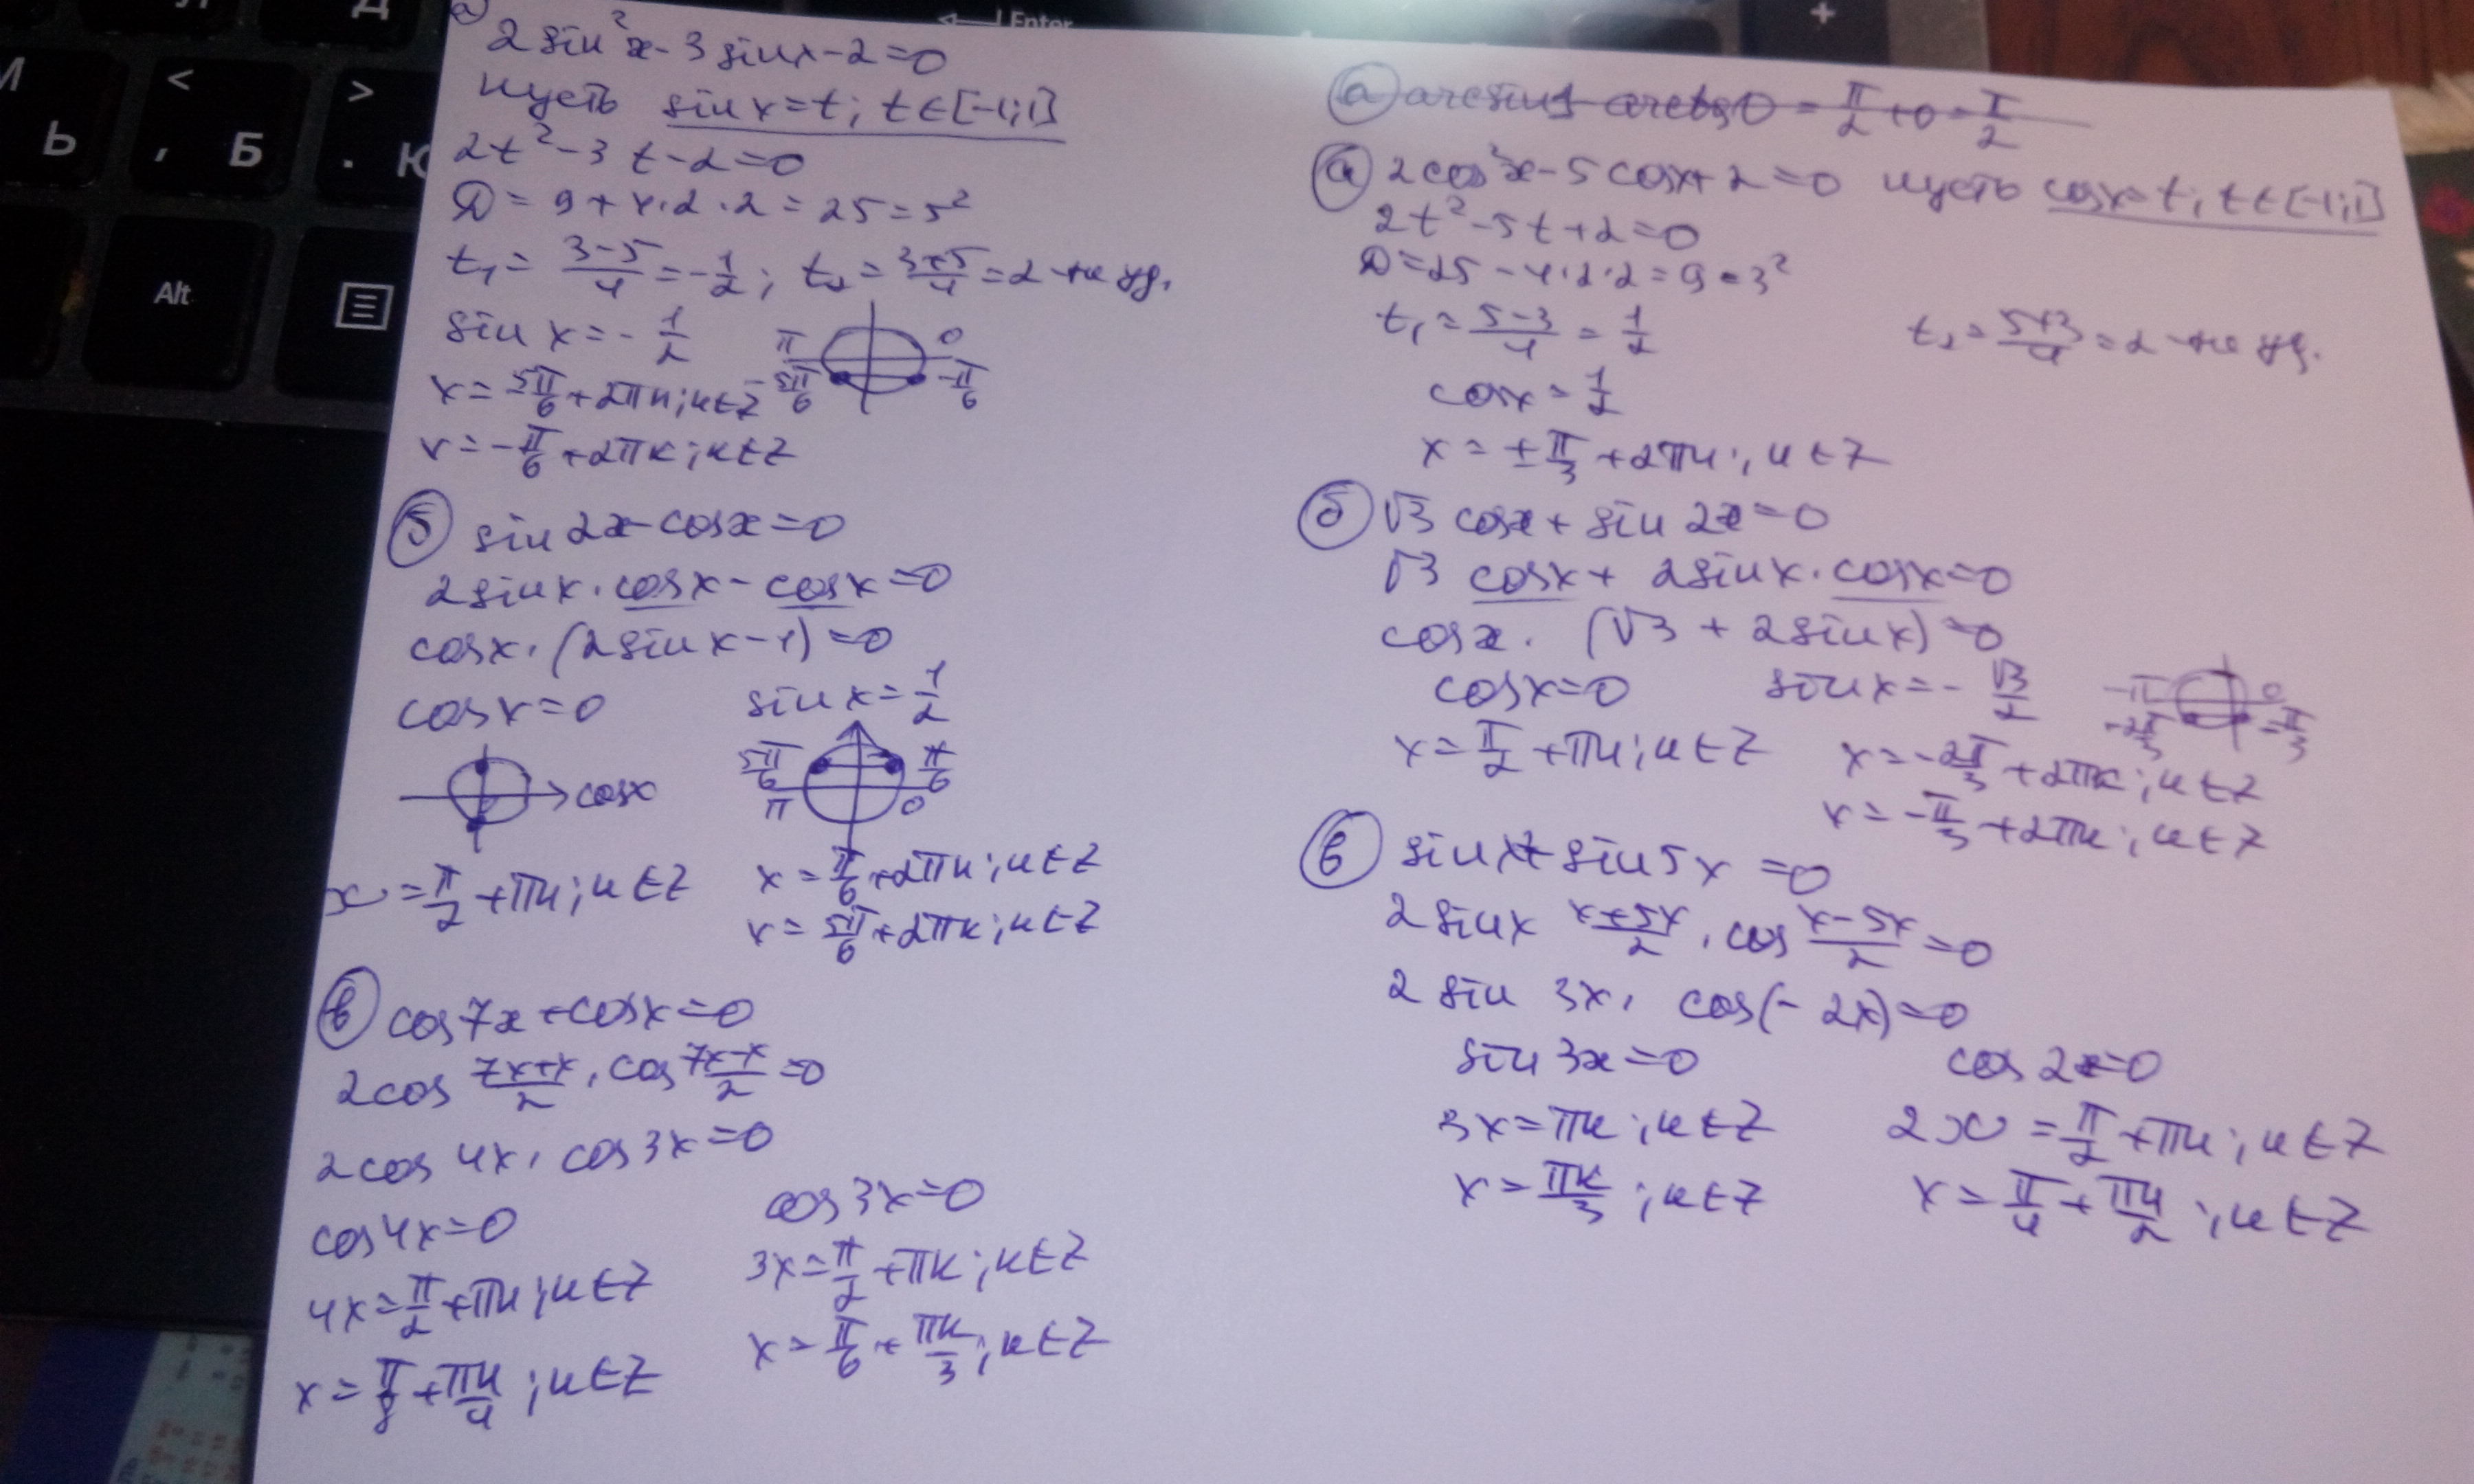 М
Ь
<
,
Б
>
.
Ю
Д
Alt
Enter
+
а
2 sin²x - 3 sinx - 2 = 0
пусть sin x = t; t ∈ [-1;1]
2t² - 3t - 2 = 0
D = 9 + 4·2·2 = 25 = 5²
t₁ = (3-5)/4 = -1/2; t₂ = (3+5)/4 = 2 - не уд.
sin x = -1/2
π 0
-5π/6 -π/6
x = -5π/6 + 2πк; к ∈ Z
x = -π/6 + 2πк; к ∈ Z
б sin 2x - cosx = 0
2sin x · cosx - cosx = 0
cosx · (2sin x - 1) = 0
cosx = 0 sin x = 1/2
cosx
5π/6 π/6
π 0
x = π/2 + πк; к ∈ Z
x = π/6 + 2πк; к ∈ Z
x = 5π/6 + 2πк; к ∈ Z
в cos7x + cosx = 0
2cos (7x+x)/2 · cos (7x-x)/2 = 0
2cos 4x · cos3x = 0
cos4x = 0 cos3x = 0
4x = π/2 + πк; к ∈ Z 3x = π/2 + πк; к ∈ Z
x = π/8 + πк/4; к ∈ Z x = π/6 + πк/3; к ∈ Z
а arcsin1 - arctg0 = π/2 + 0 = π/2
а 2cos²x - 5cosx + 2 = 0 пусть cosx = t, t ∈ [-1;1]
2t² - 5t + 2 = 0
D = 25 - 4·2·2 = 9 = 3²
t₁ = (5-3)/4 = 1/2 t₂ = (5+3)/4 = 2 - не уд.
cosx = 1/2
x = ± π/3 + 2πк; к ∈ Z
б √3 cosx + sin 2x = 0
√3 cosx + 2sin x · cosx = 0
cosx · (√3 + 2sin x) = 0
cosx = 0 sin x = -√3/2
-π 0
-2π/3 -π/3
x = π/2 + πк; к ∈ Z x = -2π/3 + 2πк; к ∈ Z
x = -π/3 + 2πк; к ∈ Z
в sin x + sin 5x = 0
2 sin x (x+5x)/2 · cos (x-5x)/2 = 0
2 sin 3x · cos(-2x) = 0
sin 3x = 0 cos 2x = 0
3x = πк; к ∈ Z 2x = π/2 + πк; к ∈ Z
x = πк/3; к ∈ Z x = π/4 + πк/2; к ∈ Z